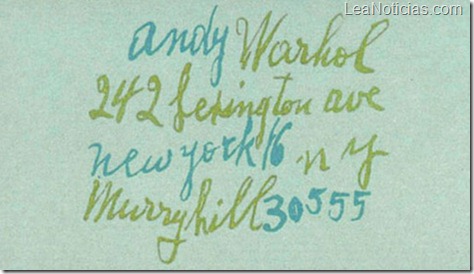 LeaNoticias.com
andy Warhol
242 lexington ave
new york 16 n y
Murryhill 30555